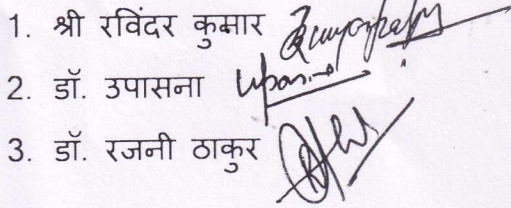 1. श्री रविंदर कुमार
2. डॉ. उपासना
3. डॉ. रजनी ठाकुर